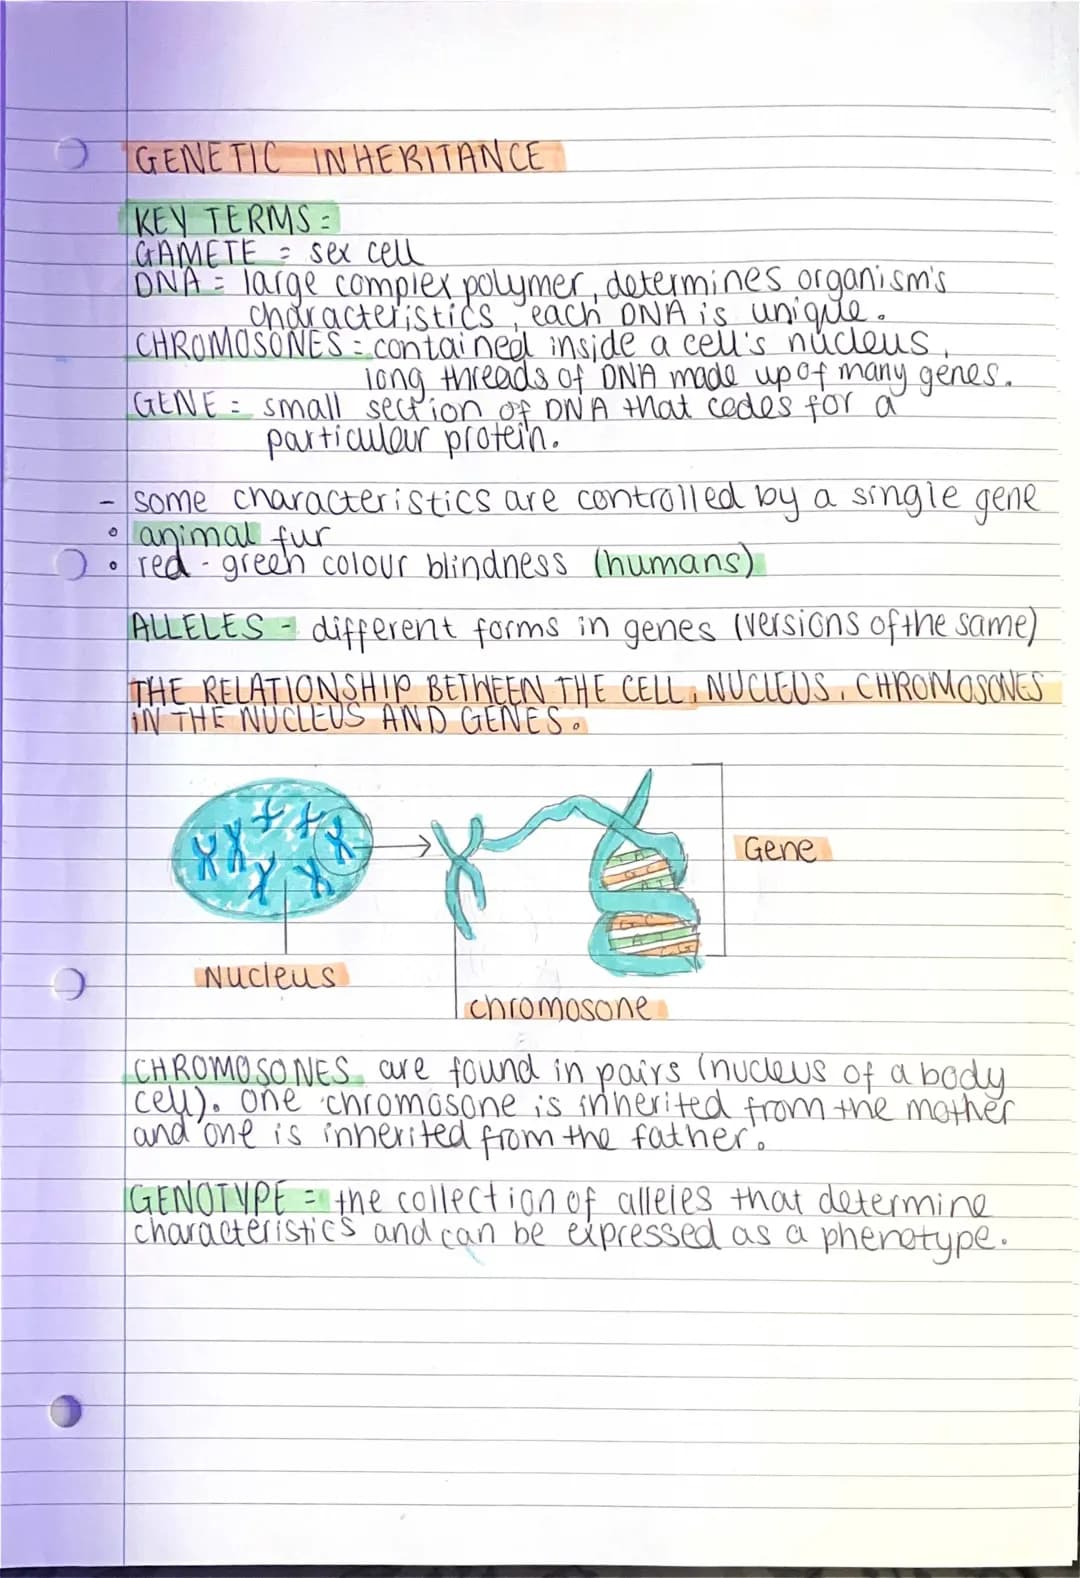 GENETIC INHERITANCE
KEY TERMS =
GAMETE = sex cell
DNA = large complex polymer, determines organism's
characteristics, each DNA is unique.
CHROMOSONES = contained inside a cell's nucleus,
long threads of DNA made up of many genes.
GENE = small section of DNA that codes for a
particular protein.
- some characteristics are controlled by a single gene
• animal fur
• red - green colour blindness (humans)
ALLELES - different forms in genes (versions of the same)
THE RELATIONSHIP BETWEEN THE CELL, NUCLEUS, CHROMOSONES
IN THE NUCLEUS AND GENES.
Gene
Nucleus
chromosone
CHROMOSONES are found in pairs (nucleus of a body
cell). One chromosone is inherited from the mother
and one is inherited from the father.
GENOTYPE = the collection of alleles that determine
characteristics and can be expressed as a phenotype.